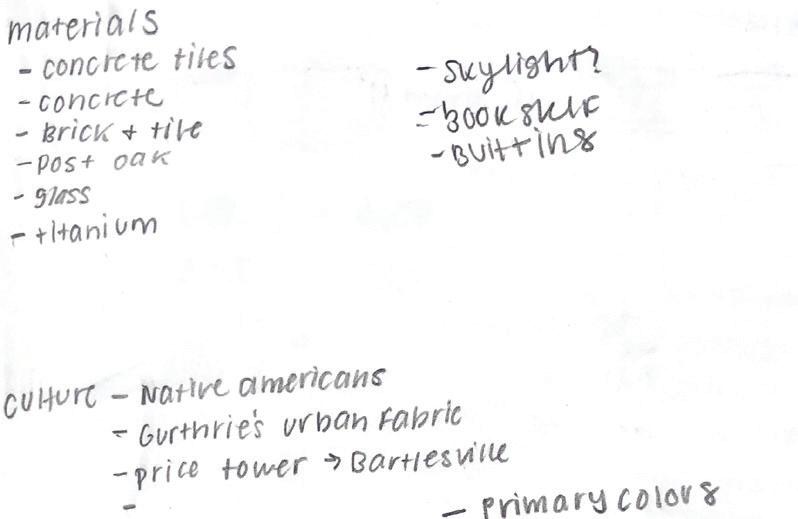 materials
- concrete tiles
- concrete
- Brick + tile
- post oak
- glass
- titanium
- skylight?
- book shelf
- Built ins
culture - Native americans
- Gurthrie's urban Fabric
- price tower → Bartlesville
-
- primary colors